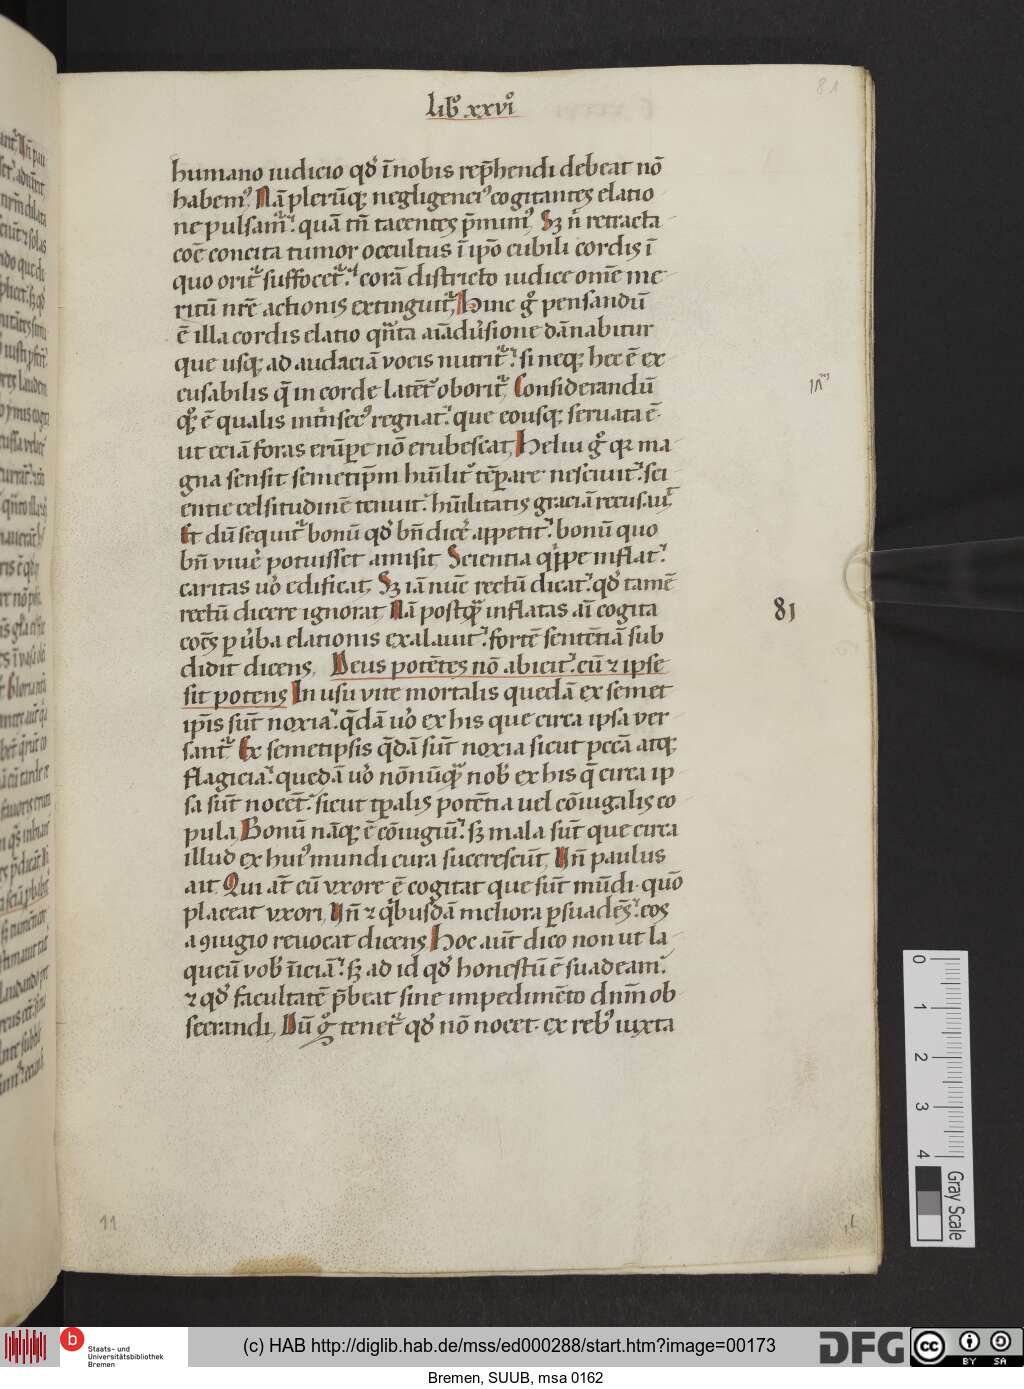 lib̄ xxvi
81
humano iudicio qđ ī nobis rep̄hendi debeat nō
habemꝰ. Nā plerūqꝫ negligenciꝰ cogitantes elatio
ne pulsamᷣ. quā tn̄ tacentes p̄mimꝰ. Sꝫ n̄ retracta
cōe concita tumor occultus ī ip̄o cubili cordis ī
quo oritᷣ suffocetᷣ. corā districto iudice om̄e me
ritū nr̄e actionis extinguitᷣ. Hinc gͦ pensandū
ē illa cordis elatio qn̄ta aīadūsione dānabitur
que usqꝫ ad audaciā vocis nutritᷣ. si neqꝫ hec ē ex
cusabilis q̄ in corde latēt oboritᷣ. Considerandū
qꝫ ē qualis int̄nsecꝰ regnat. que eousqꝫ seruata ē.
ut eciā foras erūpe nō erubescat, Heliu gͦ qꝛ ma
gna sensit semetip̄m hūilitᷣ tēpare nesciuit. sci
entie celsitudinē tenuit. hūilitatis graciā recusauit
Et dū sequitᷣ bonū qđ bn̄ dicē appetit. bonū quo
bn̄ viuē potuisset amisit, Sciencia qͥppe inflat.
caritas uͦo edificat, Sꝫ iā nūc rectū dicat. qđ tamē
rectū dicere ignorat Nā postqͣ inflatas aū cogita
81
cōes p ūba elationis exalauit. fortē sentētiā sub
didit dicens, Deus potētes nō abicit. cū ⁊ ipse
sit potens In usu vite mortalis quedā ex semet
ip̄is sūt noxia. q̄dā uͦo ex his que circa ipsa ver
santᷣ Ex semetipsis q̄dā sūt noxia sicut pccā atqꝫ
flagicia. quedā uͦo nōnūqͣ nob̄ ex his q̄ circa ip
sa sūt nocēt. sicut tp̄alis potētia uel cōiugalis co
pula, Bonū nāqꝫ ē cōiugiū. sꝫ mala sūt que circa
illud ex huiꝰ mundi cura succrescūt, Un̄ paulus
ait Qui at̄ cū vxore ē cogitat que sūt mūdi. quō
placeat vxori, Un̄ ⁊ qͥbusdā meliora psuadēs. eos
a ꝯiugio reuocat dicens Hoc aūt dico non ut la
queū vob̄ īiciā. sꝫ ad id qđ honestū ē suadeam.
⁊ qđ facultatē p̄beat sine impedimēto dn̄m ob
secrandi, Dū gͦ tenetᷣ qđ nō nocet. ex rebꝰ iuxta
11
0
1
2
3
4
Gray Scale
b
Staats- und
Universitätsbibliothek
Bremen
(c) HAB http://diglib.hab.de/mss/ed000288/start.htm?image=00173
DFG
cc
BY SA
Bremen, SUUB, msa 0162